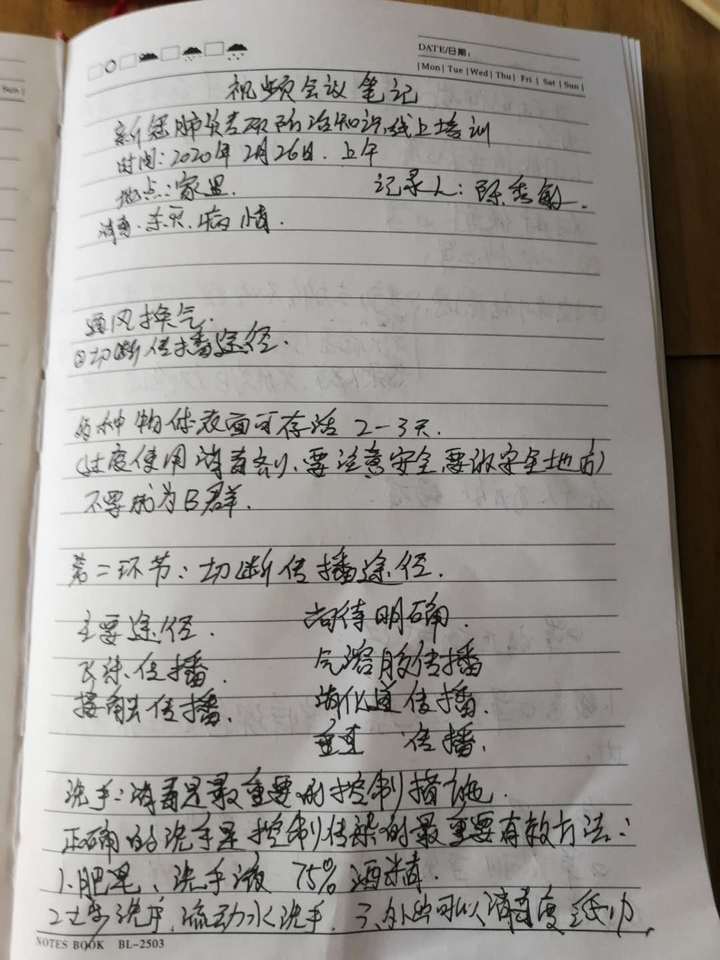 DATE/日期:
|Mon| Tue |Wed| Thu| Fri | Sat | Sun |
视频会议笔记
新冠肺炎疫防治知识线上培训
时间:2020年2月26日.上午
地点:家里. 记录人:陈秀敏.
消毒.杀灭.病情.
通风换气.
②切断传播途径.
各种物体表面可存活2-3天.
(过度使用消毒剂、要注意安全,要放安全地方)
不要成为B群.
第二环节:切断传播途径.
主要途径. 尚待明确.
飞沫传播. 气溶胶传播
接触传播. 消化道传播.
垂直 传播.
洗手:消毒是最重要的控制措施.
正确的洗手是控制传染的最重要有效方法:
1.肥皂、洗手液 75%酒精.
2.七步洗手,流动水洗手. 3.外出可以消毒湿纸巾
NOTES BOOK BL-2503
Sun |